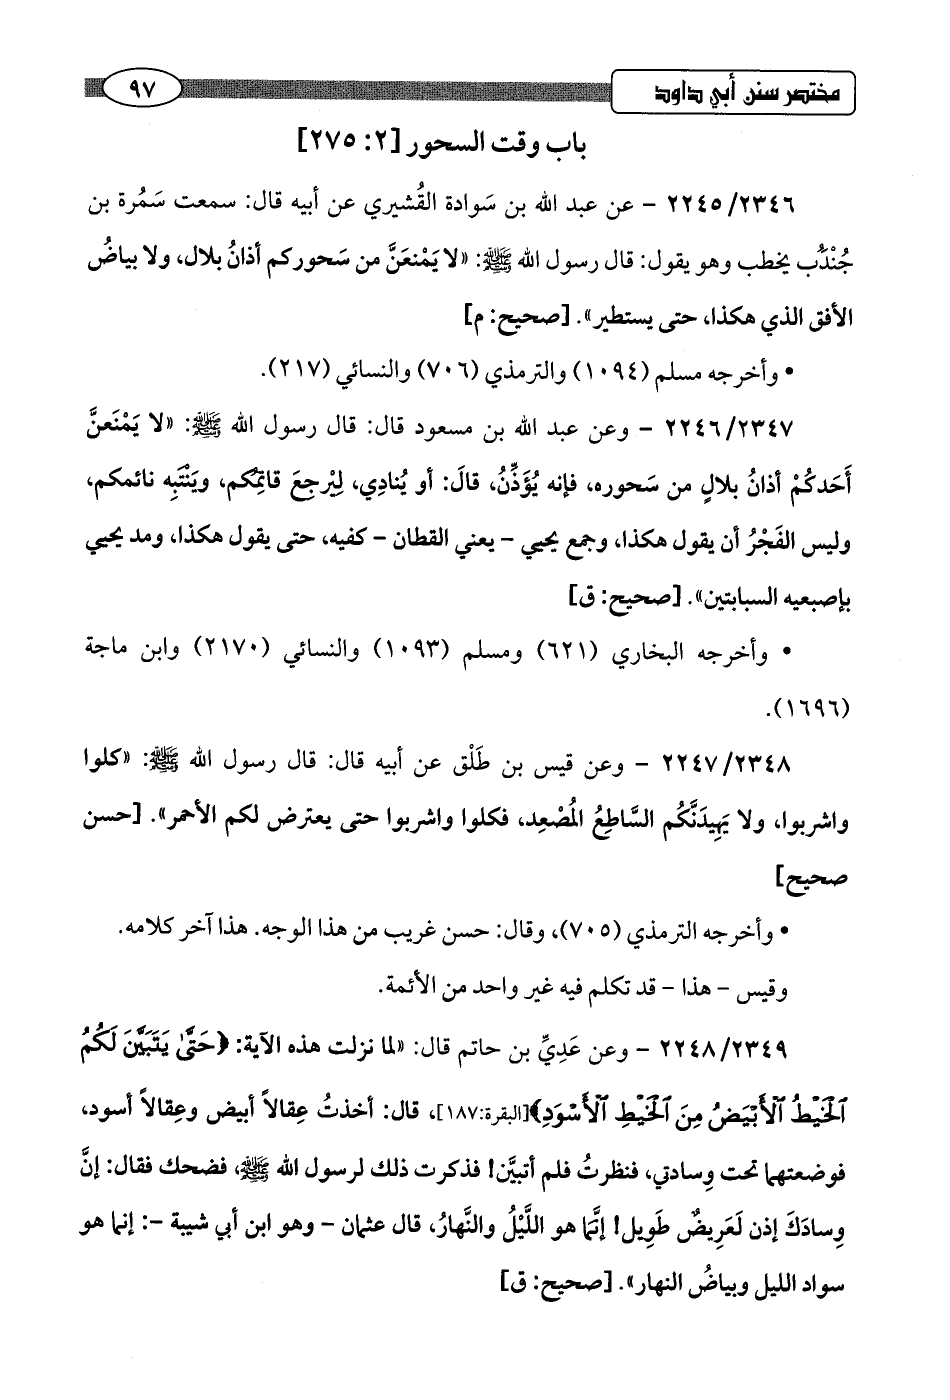 مختصر سنن أبي داود ٩٧
باب وقت السحور [٢: ٢٧٥]
٢٢٤٥/٢٣٤٦ - عن عبد الله بن سَوادة القُشيري عن أبيه قال: سمعت سَمُرة بن
جُنْدُب يخطب وهو يقول: قال رسول الله ﷺ: «لا يَمْنعَنَّ من سَحوركم أذانُ بلال، ولا بياضُ
الأفق الذي هكذا، حتى يستطير». [صحيح: م]
• وأخرجه مسلم (١٠٩٤) والترمذي (٧٠٦) والنسائي (٢١٧).
٢٢٤٦/٢٣٤٧ - وعن عبد الله بن مسعود قال: قال رسول الله ﷺ: «لا يَمْنَعَنَّ
أَحَدكُمْ أذانُ بلالٍ من سَحوره، فإنه يُؤَذِّنُ، قالَ: أو يُنادي، لِيَرجعَ قائمكم، ويَنْتَبِه نائمكم،
وليس الفَجْرُ أن يقول هكذا، وجمع يحيى - يعني القطان - كفيه، حتى يقول هكذا، ومد يحيى
بإصبعيه السبابتين». [صحيح: ق]
• وأخرجه البخاري (٦٢١) ومسلم (١٠٩٣) والنسائي (٢١٧٠) وابن ماجة
(١٦٩٦).
٢٢٤٧/٢٣٤٨ - وعن قيس بن طَلْق عن أبيه قال: قال رسول الله ﷺ: «كلوا
واشربوا، ولا يَهِيدَنَّكُم السَّاطِعُ المُصْعِد، فكلوا واشربوا حتى يعترض لكم الأحمر». [حسن
صحيح]
• وأخرجه الترمذي (٧٠٥)، وقال: حسن غريب من هذا الوجه. هذا آخر كلامه.
وقيس - هذا - قد تكلم فيه غير واحد من الأئمة.
٢٢٤٨/٢٣٤٩ - وعن عَدِيِّ بن حاتم قال: «لما نزلت هذه الآية: ﴿حَتَّىٰ يَتَبَيَّنَ لَكُمُ
ٱلْخَيْطُ ٱلْأَبْيَضُ مِنَ ٱلْخَيْطِ ٱلْأَسْوَدِ﴾[البقرة:١٨٧]، قال: أخذتُ عِقالاً أبيض وعِقالاً أسود،
فوضعتهما تحت وِسادتي، فنظرتُ فلم أتبيَّن! فذكرت ذلك لرسول الله ﷺ، فضحك فقال: إنَّ
وِسادَكَ إذن لَعَرِيضٌ طَوِيل! إنَّما هو اللَّيْلُ والنَّهارُ، قال عثمان - وهو ابن أبي شيبة -: إنما هو
سواد الليل وبياضُ النهار». [صحيح: ق]